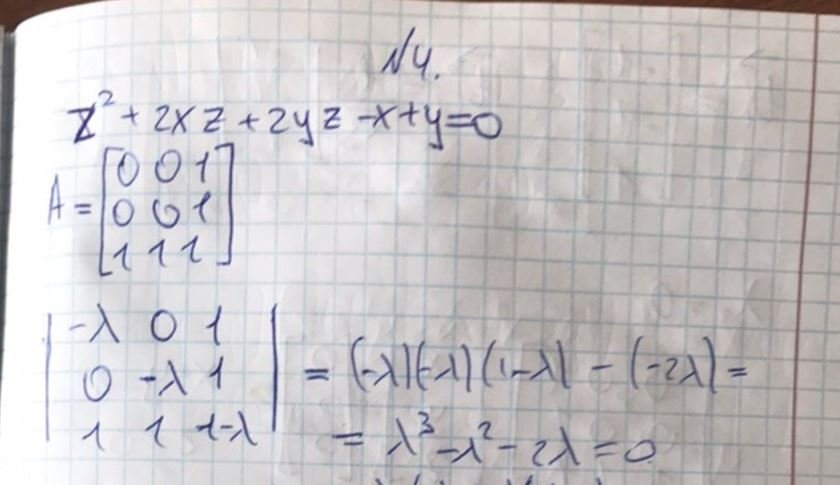 №4.
z² + 2xz + 2yz -x+y=0
A = [0 0 1
0 0 1
1 1 1]
|-λ 0 1
0 -λ 1
1 1 1-λ| = (-λ)(-λ)(1-λ) - (-2λ) =
= λ³-λ²-2λ=0